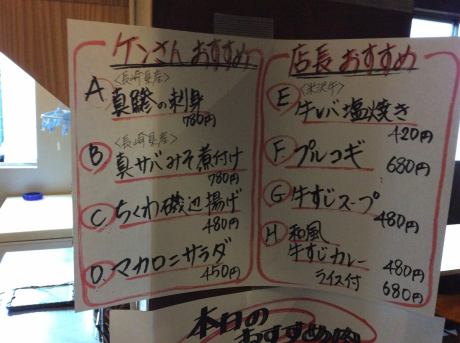 ケンさん おすすめ
A
<長崎県産>
真鯵の刺身
780円
B
<長崎県産>
真サバみそ煮付け
780円
C ちくわ磯辺揚げ
480円
D マカロニサラダ
450円
店長おすすめ
E
<米沢牛>
牛レバ塩焼き
420円
F プルコギ
680円
G 牛すじスープ
480円
H 和風
牛すじカレー
480円
ライス付
680円
本日の
おすすめ